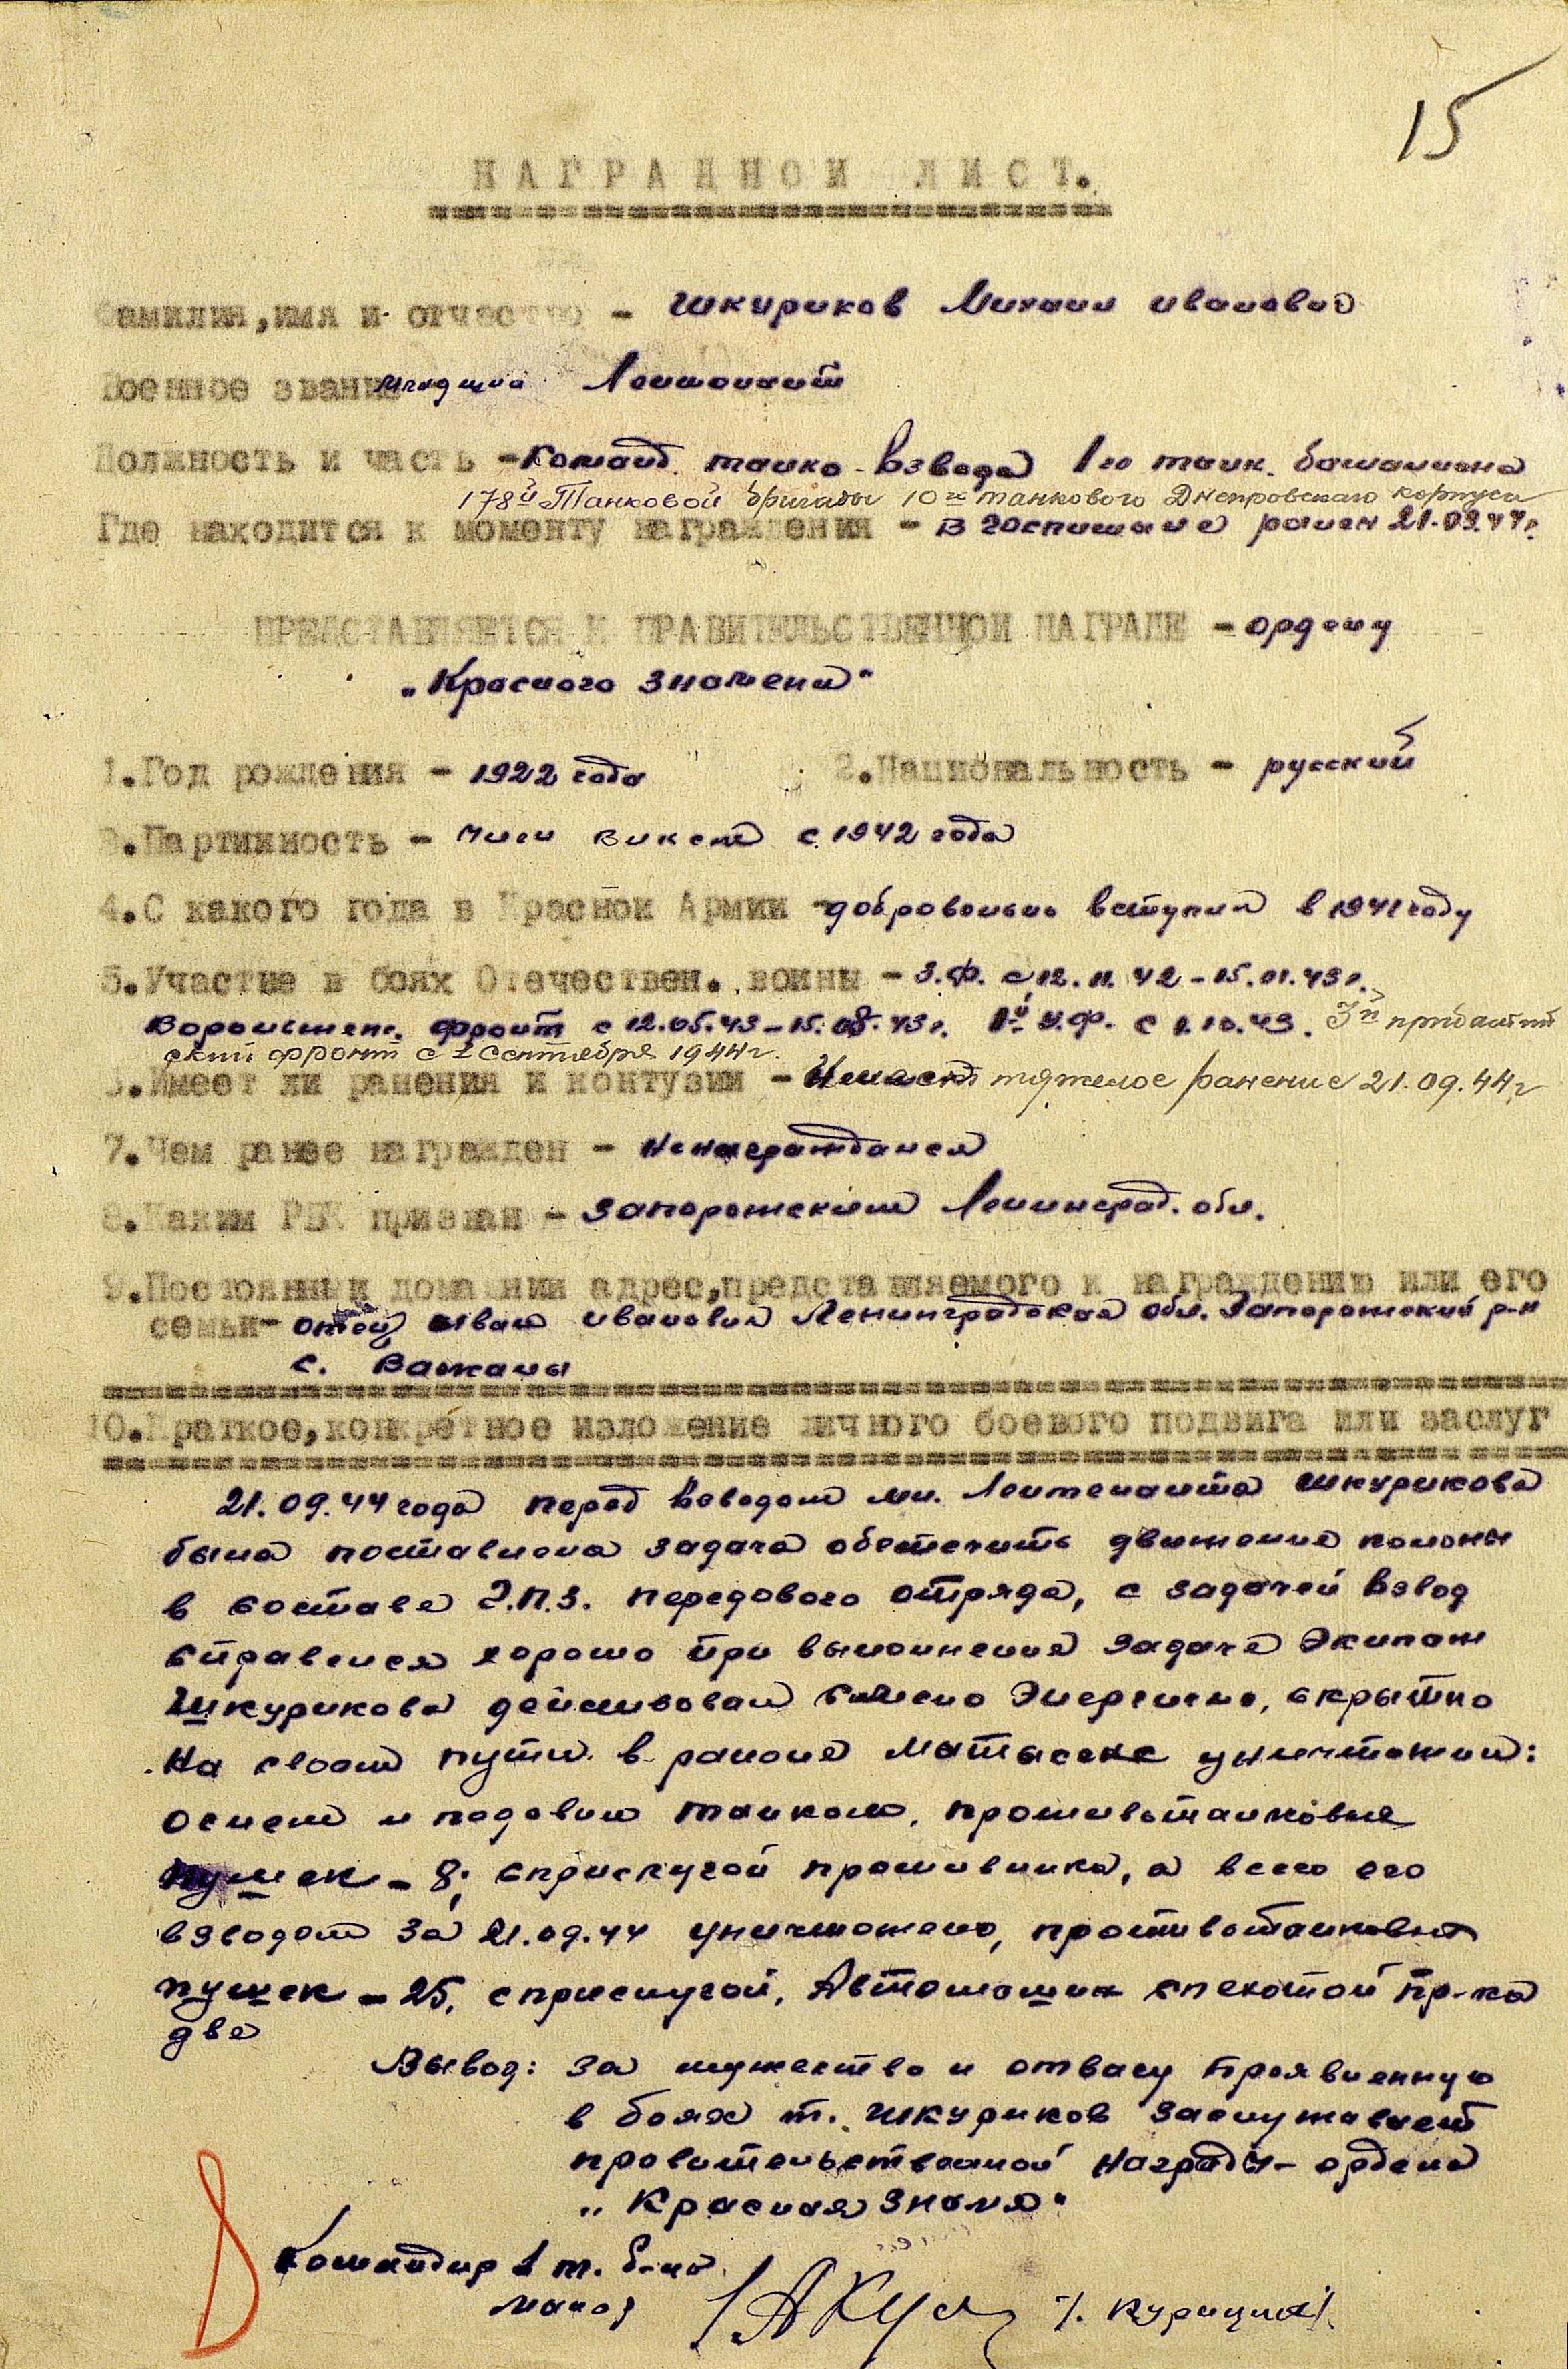 15
НАГРАДНОЙ ЛИСТ.
Фамилия, имя и отчество - Шкуриков Михаил Иванович
Военное звание младший Лейтенант
Должность и часть - Команд. танко-взвода 1го танк. батальона
178й Танковой бригады 10го танкового Днепровского корпуса
Где находится к моменту награждения - В госпитале ранен 21.09.44г.
ПРЕДСТАВЛЯЕТСЯ К ПРАВИТЕЛЬСТВЕННОЙ НАГРАДЕ - ордену
„Красного знамени"
1. Год рождения - 1922 года 2. Национальность - русский
3. Партийность - Член ВЛКСМ с 1942 года
4. С какого года в Красной Армии - добровольно вступил в 1941 году
5. Участие в боях Отечествен. войны - З.Ф. с 12.11.42 - 15.01.43г.
Воронежск. фронт с 12.05.43 - 15.08.43г. 1й У.Ф. с 1.10.43. 3й прибалтий
ский фронт с 1 сентября 1944г.
6. Имеет ли ранения и контузии - Имеет тяжелое ранение 21.09.44г
7. Чем ранее награжден - Ненаграждался
8. Каким РВК призван - Запорожским Ленинград. обл.
9. Постоянный домашний адрес, представляемого к награждению или его
семьи - отец Иван Иванович Ленинградская обл. Запорожский р-н
с.
10. Краткое, конкретное изложение личного боевого подвига или заслуг
21.09.44 года перед взводом мл. Лейтенанта Шкурикова
была поставлена задача обеспечить движение колоны
в составе Г.П.З. передового отряда, с задачей взвод
справился хорошо при выполнение задаче Экипаж
Шкурикова действовал смело Энергично, скрытно
На своем пути в районе Матысене уничтожил:
огнем и подавил танком, противотанковые
пушек - 8; с прислугой противника, а всего его
взводом за 21.09.44 уничтожено, противотанковых
пушек - 25, с прислугой, Автомашин с пехотой пр-ка
две
Вывод: за мужество и отвагу проявленную
в боях т. Шкуриков заслуживает
правительственной Награды - ордена
„Красная Знамя"
Командир 1 т. б-на
майор /Курицын/